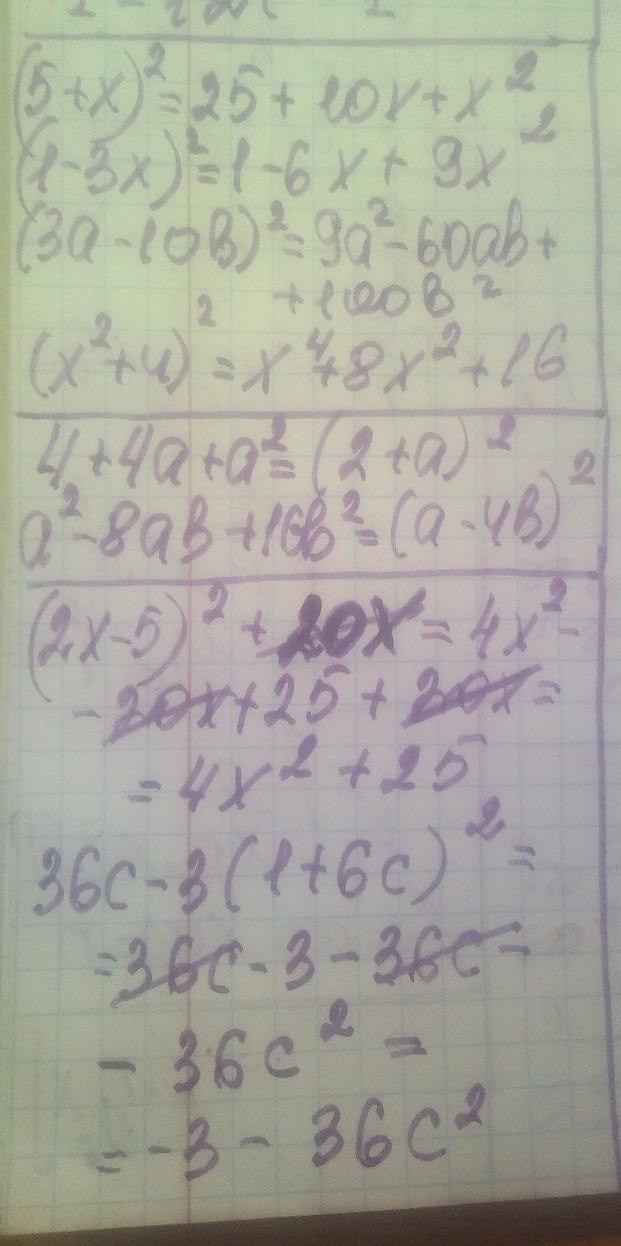 (5+x)²=25+10x+x²
(1-3x)²=1-6x+9x²
(3a-10b)²=9a²-60ab+
+100b²
(x²+4)²=x⁴+8x²+16
4+4a+a²=(2+a)²
a²-8ab+16b²=(a-4b)²
(2x-5)²+20x=4x²-
-20x+25+20x=
=4x²+25
36c-3(1+6c)²=
=36c-3-36c-
-36c²=
=-3-36c²